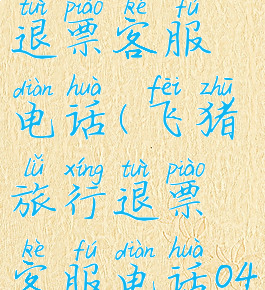 tuì piào kè fú
退票客服
diàn huà fēi zhū
电话(飞猪
lǚ xíng tuì piào
旅行退票
kè fú diàn huà
客服电话04